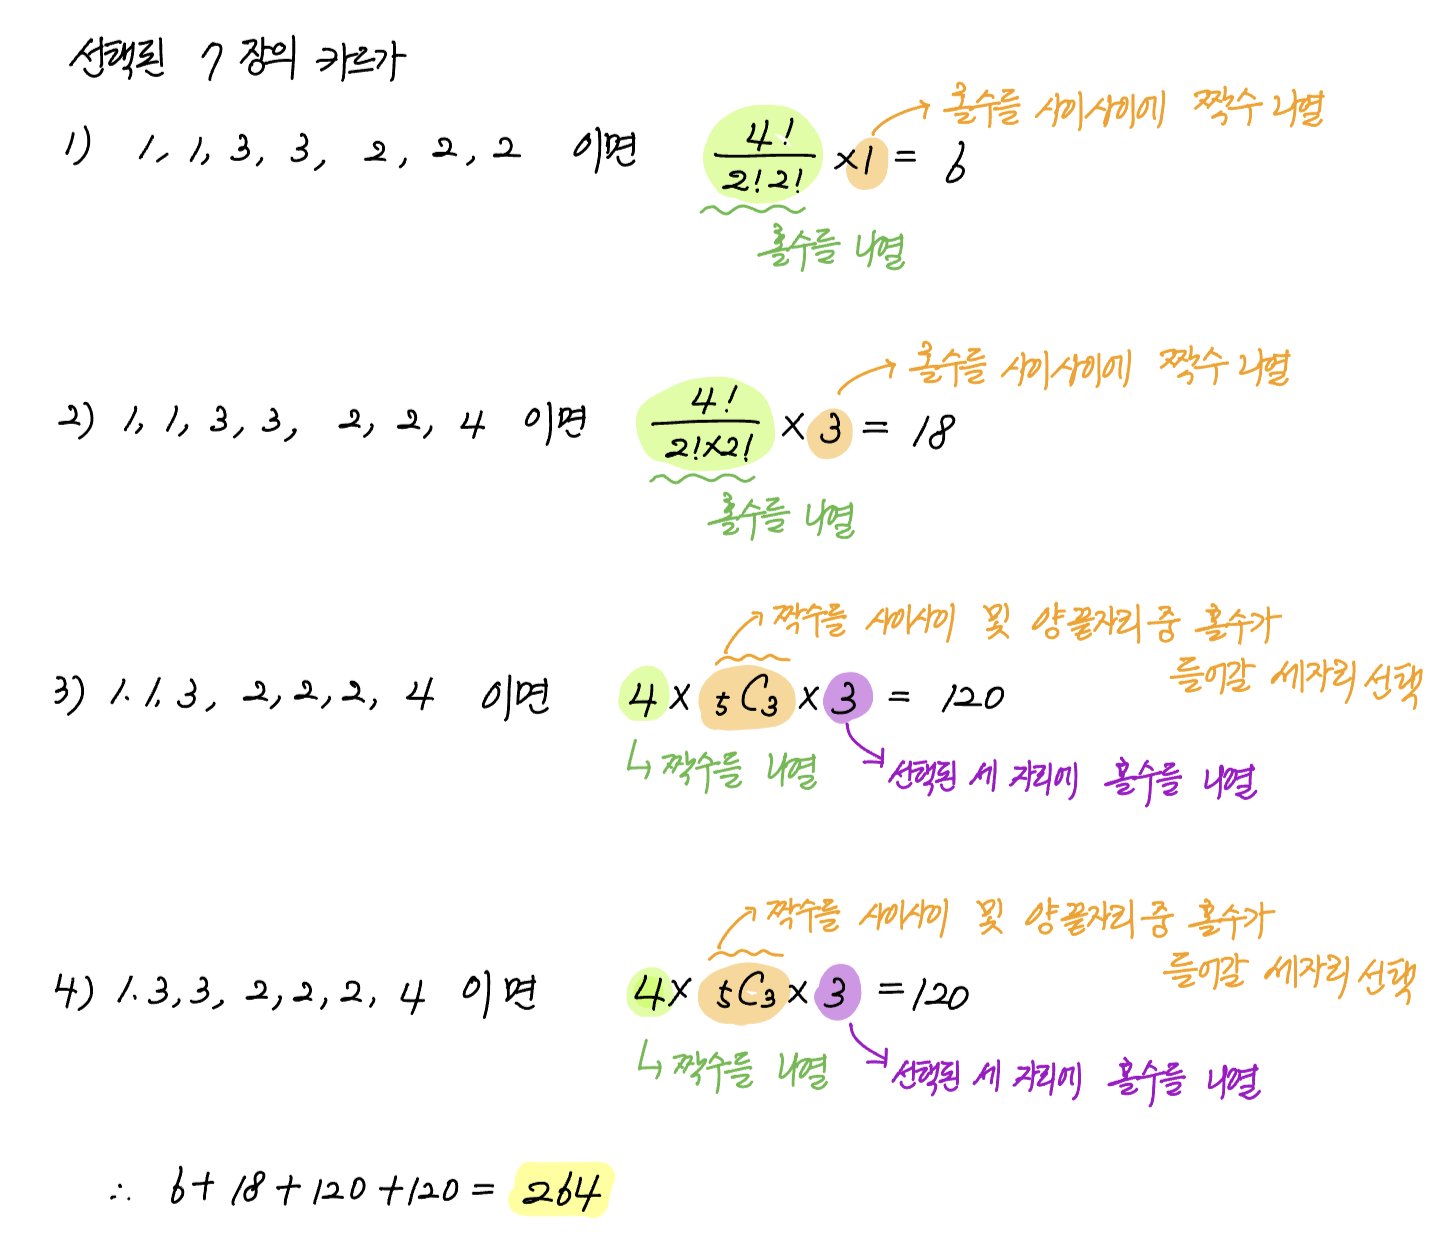 선택된 7장의 카드가
→ 홀수를 사이사이에 짝수 나열
1) 1, 1, 3, 3, 2, 2, 2 이면 4!/2!2! ×1 = 6
홀수를 나열
→ 홀수를 사이사이에 짝수 나열
2) 1, 1, 3, 3, 2, 2, 4 이면 4!/2!×2! × 3 = 18
홀수를 나열
→ 짝수를 사이사이 및 양끝자리 중 홀수가
들어갈 세자리 선택
3) 1. 1, 3, 2, 2, 2, 4 이면 4 × ₅C₃ × 3 = 120
↳ 짝수를 나열 → 선택된 세 자리에 홀수를 나열
→ 짝수를 사이사이 및 양끝자리 중 홀수가
들어갈 세자리 선택
4) 1. 3, 3, 2, 2, 2, 4 이면 4× ₅C₃ × 3 =120
↳ 짝수를 나열 → 선택된 세 자리에 홀수를 나열
∴ 6+ 18 + 120 +120 = 264